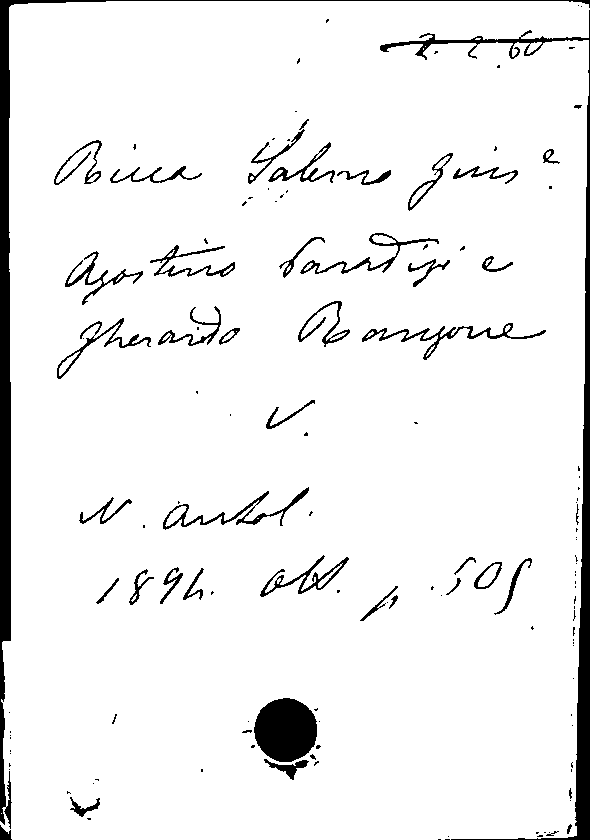 2. 2. 60
Ricca Salerno Gius.e
Agostino Paradisi e
Gherardo Rangone
V.
N. Antol.
1894. ott. p. 505